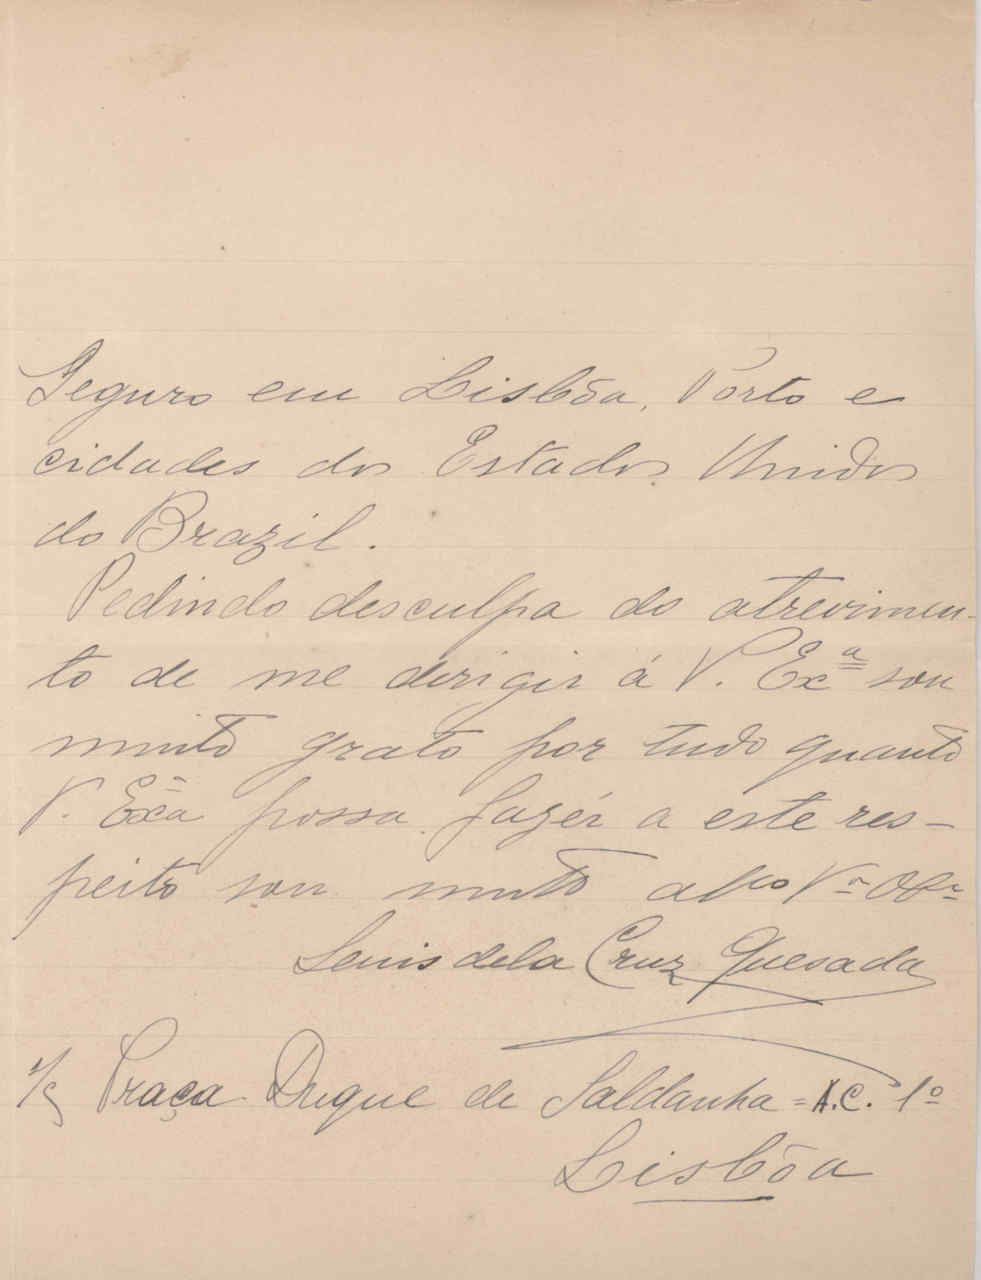 Seguro em Lisbõa, Porto e
cidades dos Estados Unidos
do Brazil.
Pedindo desculpa do atrevimen-
to de me dirigir á V. Exª sou
muito grato por tudo quanto
V. Exa possa fazér a este res-
peito sou muito
Luis dela Cruz Quesada
Praça Duque de Saldanha = A.C. 1º
Lisbõa